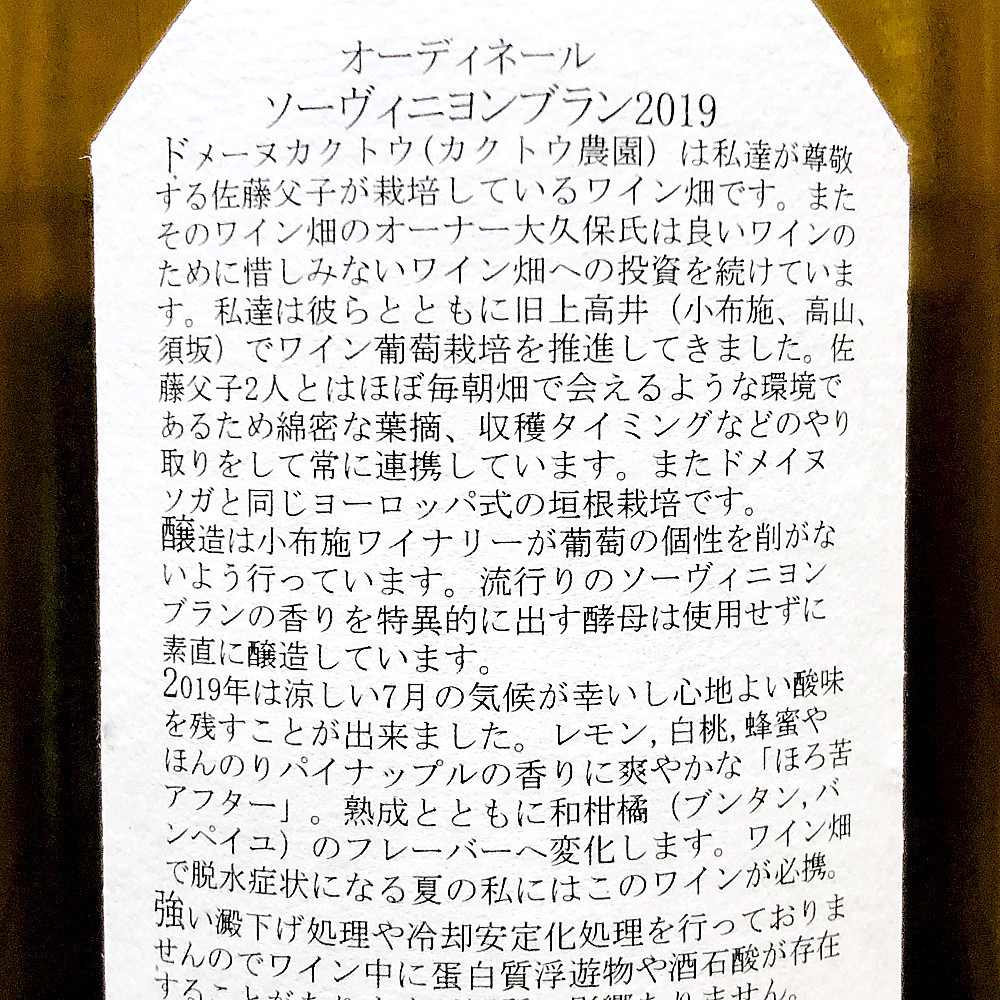 オーディネール
ソーヴィニヨンブラン2019
ドメーヌカクトウ(カクトウ農園) は私達が尊敬
する佐藤父子が栽培しているワイン畑です。また
そのワイン畑のオーナー大久保氏は良いワインの
ために惜しみないワイン畑への投資を続けていま
す。私達は彼らとともに旧上高井（小布施、高山、
須坂）でワイン葡萄栽培を推進してきました。佐
藤父子2人とはほぼ毎朝畑で会えるような環境で
あるため綿密な葉摘、収穫タイミングなどのやり
取りをして常に連携しています。またドメイヌ
ソガと同じヨーロッパ式の垣根栽培です。
醸造は小布施ワイナリーが葡萄の個性を削がな
いよう行っています。流行りのソーヴィニヨン
ブランの香りを特異的に出す酵母は使用せずに
素直に醸造しています。
2019年は涼しい7月の気候が幸いし心地よい酸味
を残すことが出来ました。レモン,白桃,蜂蜜や
ほんのりパイナップルの香りに爽やかな「ほろ苦
アフター」。熟成とともに和柑橘（ブンタン,バ
ンペイユ）のフレーバーへ変化します。ワイン畑
で脱水症状になる夏の私にはこのワインが必携。
強い澱下げ処理や冷却安定化処理を行っておりま
せんのでワイン中に蛋白質浮遊物や酒石酸が存在
することが